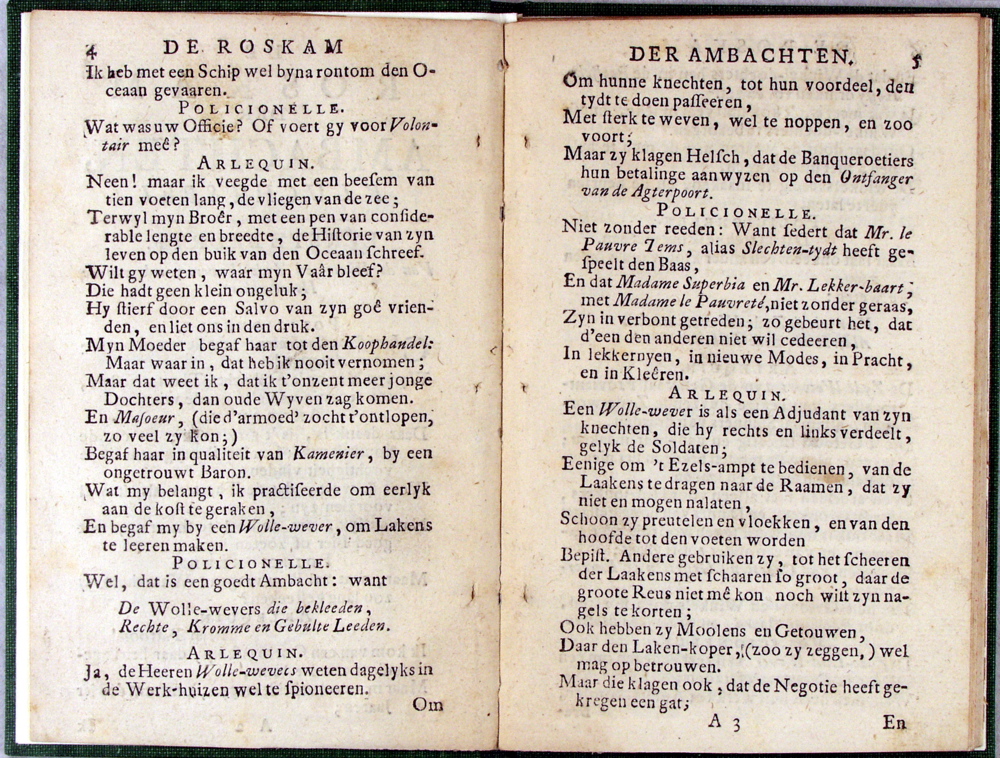 4 DE ROSKAM
Ik heb met een Schip wel byna rontom den O-
ceaan gevaaren.
POLICIONELLE.
Wat was uw Officie? Of voert gy voor Volon-
tair meê?
ARLEQUIN.
Neen! maar ik veegde met een beesem van
tien voeten lang, de vliegen van de zee;
Terwyl myn Broêr, met een pen van conside-
rable lengte en breedte, de Historie van zyn
leven op den buik van den Oceaan schreef.
Wilt gy weten, waar myn Vaâr bleef?
Die hadt geen klein ongeluk;
Hy stierf door een Salvo van zyn goê vrien-
den, en liet ons in den druk.
Myn Moeder begaf haar tot den Koophandel:
Maar waar in, dat heb ik nooit vernomen;
Maar dat weet ik, dat ik t'onzent meer jonge
Dochters, dan oude Wyven zag komen.
En Masoeur, (die d'armoed' zocht t'ontlopen,
zo veel zy kon;)
Begaf haar in qualiteit van Kamenier, by een
ongetrouwt Baron.
Wat my belangt, ik practiseerde om eerlyk
aan de kost te geraken,
En begaf my by een Wolle-wever, om Lakens
te leeren maken.
POLICIONELLE.
Wel, dat is een goedt Ambacht: want
De Wolle-wevers die bekleeden,
Rechte, Kromme en Gebulte Leeden.
ARLEQUIN.
Ja, de Heeren Wolle-wevers weten dagelyks in
de Werk-huizen wel te spioneeren.
Om
DER AMBACHTEN. 5
Om hunne knechten, tot hun voordeel, den
tydt te doen passeeren,
Met sterk te weven, wel te noppen, en zoo
voort;
Maar zy klagen Helsch, dat de Banqueroetiers
hun betalinge aanwyzen op den Ontfanger
van de Agterpoort.
POLICIONELLE.
Niet zonder reeden: Want sedert dat Mr. le
Pauvre Tems, alias Slechten-tydt heeft ge-
speelt den Baas,
En dat Madame Superbia en Mr. Lekker-baart,
met Madame le Pauvreté, niet zonder geraas,
Zyn in verbont getreden; zo gebeurt het, dat
d'een den anderen niet wil cedeeren,
In lekkernyen, in nieuwe Modes, in Pracht,
en in Kleêren.
ARLEQUIN.
Een Wolle-wever is als een Adjudant van zyn
knechten, die hy rechts en links verdeelt,
gelyk de Soldaten;
Eenige om 't Ezels-ampt te bedienen, van de
Laakens te dragen naar de Raamen, dat zy
niet en mogen nalaten,
Schoon zy preutelen en vloekken, en van den
hoofde tot den voeten worden
Bepist. Andere gebruiken zy, tot het scheeren
der Laakens met schaaren so groot, daar de
groote Reus niet mê kon noch wist zyn na-
gels te korten;
Ook hebben zy Moolens en Getouwen,
Daar den Laken-koper, (zoo zy zeggen,) wel
mag op betrouwen.
Maar die klagen ook, dat de Negotie heeft ge-
kregen een gat;
A 3 En